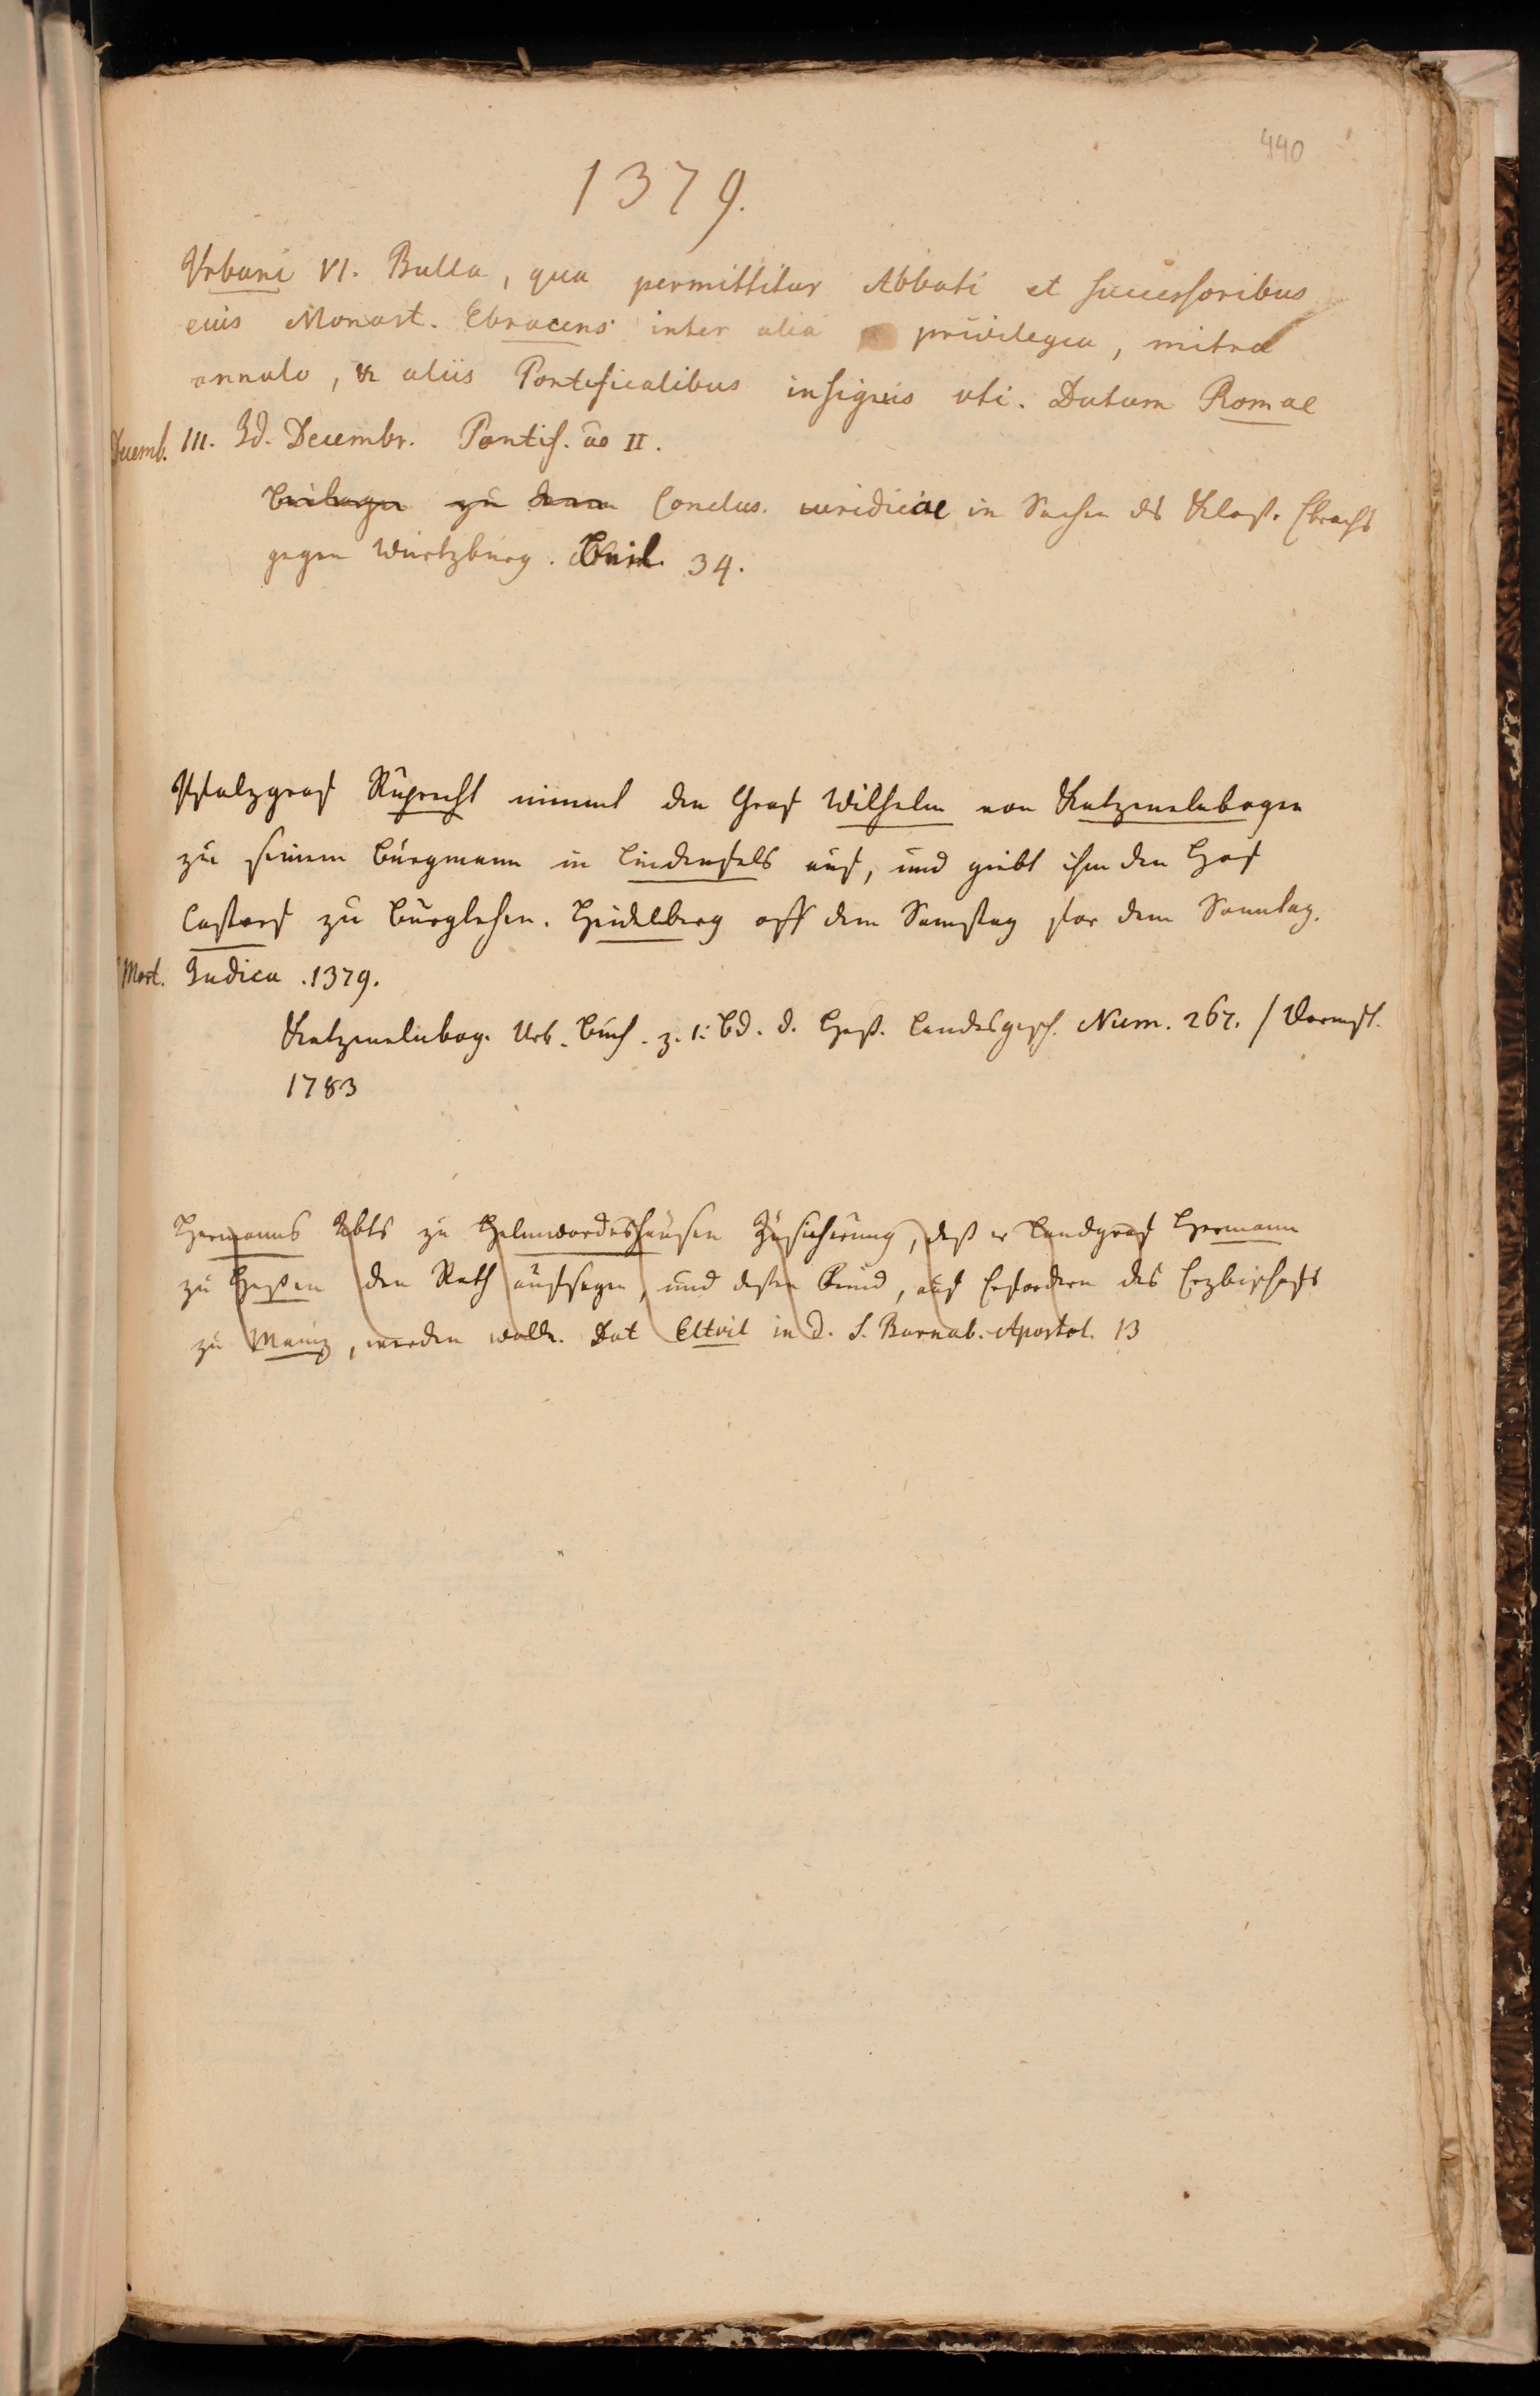 440
1379.
Urbani VI. Bulla, qua permittitur Abbati et successoribus
eius Monast. Ebracens inter alia privilegia, mitra
annulo, & aliis Pontificalibus insigniis uti. Datum Romae
Decemb. III. Id. Decembr. Pontif. ao II.
Beilagen zu denen Conclus. iuridicae in Sachen des Klost. Ebrachs
gegen Würtzburg. Beil. 34.
Pfalzgraf Ruprecht nimmt den Graf Wilhelm von Katzenelnbogen
zu seinem Burgmann in Lindenfels auf, und giebt ihm den Hof
Lastorf zu Burglehen. Heidelberg off dem Samstag vor dem Sonntag
Mart. Judica. 1379.
Katzenelnbog. Urk. Buch. z. 1. Bd. d. Heß. Landesgesch. Num. 267. / Darmst.
1783
Hermanns Abts zu Helmwardeshausen Zusicherung, daß er Landgraf Hermann
zu Heßen den Rath aufsagen, und deßen Feind, auf Erfordern des Erzbischofs
zu Mainz, werden wolle. Dat Eltvil in d. S. Barnab. Apostol. 13